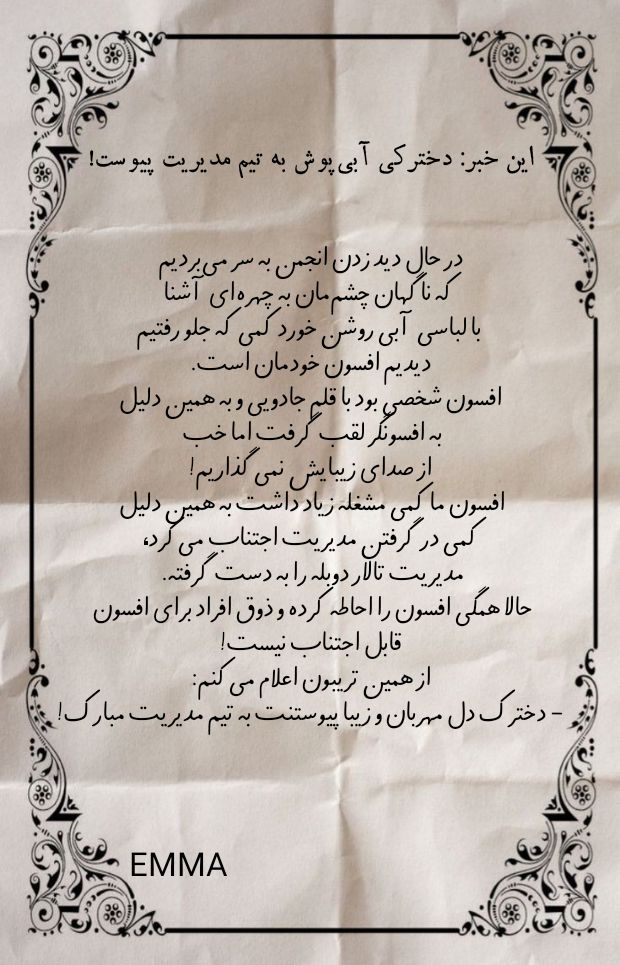 این خبر: دخترکی آبی‌پوش به تیم مدیریت پیوست!
در حال دید زدن انجمن به سر می‌بردیم
که ناگهان چشم‌مان به چهره‌ای آشنا
با لباسی آبی روشن خورد کمی که جلو رفتیم
دیدیم افسون خودمان است.
افسون شخصی بود با قلم جادویی و به همین دلیل
به افسونگر لقب گرفت اما خب
از صدای زیبایش نمی گذاریم!
افسون ما کمی مشغله زیاد داشت به همین دلیل
کمی در گرفتن مدیریت اجتناب می کرد،
مدیریت تالار دوبله را به دست گرفته.
حالا همگی افسون را احاطه کرده و ذوق افراد برای افسون
قابل اجتناب نیست!
از همین تریبون اعلام می کنم:
- دخترک دل مهربان و زیبا پیوستنت به تیم مدیریت مبارک!
EMMA